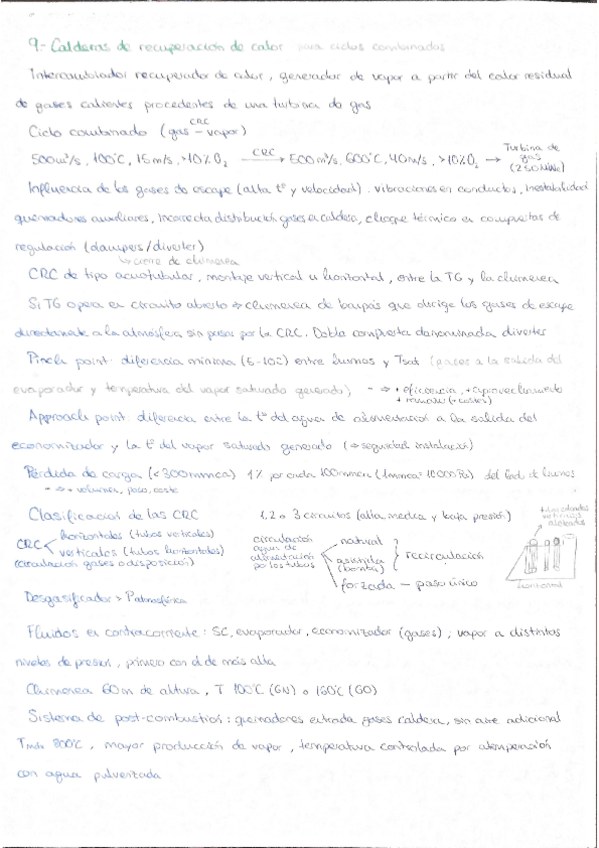 9.- Calderas de recuperación de calor para ciclos combinados
Intercambiador recuperador de calor, generador de vapor a partir del calor residual
de gases calientes procedentes de una turbina de gas
CRC
Ciclo combinado (gas - vapor)
500m³/s, 100°C, 15m/s, >10% O₂ CRC → 500m³/s, 600°C, 40m/s, >10% O₂ → Turbina de
gas
(250MWe)
Influencia de los gases de escape (alta tª y velocidad): vibraciones en conductos, inestabilidad
quemadores auxiliares, incorrecta distribución gases en caldera, choque térmico en compuertas de
regulación (dampers/diverter)
↳ cierre de chimenea
CRC de tipo acuotubular, montaje vertical u horizontal, entre la TG y la chimenea
Si TG opera en circuito abierto ⇒ chimenea de baipás que dirige los gases de escape
directamente a la atmósfera sin pasar por la CRC. Doble compuerta denominada diverter
Pinch point: diferencia mínima (5-10°C) entre humos y Tsat (gases a la salida del
evaporador y temperatura del vapor saturado generado) - ⇒ + eficiencia, + aprovechamiento
(+ costes)
Approach point: diferencia entre la tª del agua de alimentación a la salida del
economizador y la tª del vapor saturado generado (⇒ seguridad instalación)
Pérdida de carga (<300mmca) 1% por cada 100mmca del lado de humos
- ⇒ + volumen, peso, coste
Clasificación de las CRC 1, 2 o 3 circuitos (alta media y baja presión)
CRC horizontales (tubos verticales)
verticales (tubos horizontales)
(circulación gases o disposición)
circulación
agua de
alimentación
por los tubos
natural
asistida
(bomba)
recirculación
forzada - paso único
verticales
aleteados
horizontal
Desgasificador > Patmosférica
Fluidos en contracorriente: SC, evaporador, economizador (gases), vapor a distintos
niveles de presión, primero con el de más alta
Chimenea 60m de altura, T 100°C (GN) o 160°C (GO)
Sistema de post-combustión: quemadores entrada gases caldera, sin aire adicional
Tmáx 800°C, mayor producción de vapor, temperatura controlada por atemperación
con agua pulverizada